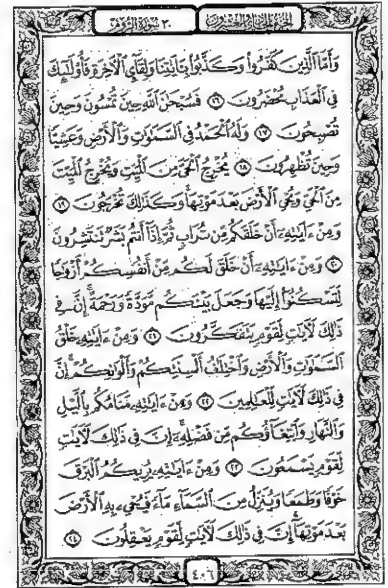 الجزء الحادي والعشرون ٣٠ سورة الروم
وَأَمَّا ٱلَّذِينَ كَفَرُواْ وَكَذَّبُواْ بِـَٔايَٰتِنَا وَلِقَآيِٕ ٱلْأٓخِرَةِ فَأُوْلَٰٓئِكَ
فِى ٱلْعَذَابِ مُحْضَرُونَ ١٦ فَسُبْحَٰنَ ٱللَّهِ حِينَ تُمْسُونَ وَحِينَ
تُصْبِحُونَ ١٧ وَلَهُ ٱلْحَمْدُ فِى ٱلسَّمَٰوَٰتِ وَٱلْأَرْضِ وَعَشِيًّا
وَحِينَ تُظْهِرُونَ ١٨ يُخْرِجُ ٱلْحَىَّ مِنَ ٱلْمَيِّتِ وَيُخْرِجُ ٱلْمَيِّتَ
مِنَ ٱلْحَىِّ وَيُحْىِ ٱلْأَرْضَ بَعْدَ مَوْتِهَا ۚ وَكَذَٰلِكَ تُخْرَجُونَ ١٩
وَمِنْ ءَايَٰتِهِۦٓ أَنْ خَلَقَكُم مِّن تُرَابٍ ثُمَّ إِذَآ أَنتُم بَشَرٌ تَنتَشِرُونَ
٢٠ وَمِنْ ءَايَٰتِهِۦٓ أَنْ خَلَقَ لَكُم مِّنْ أَنفُسِكُمْ أَزْوَٰجًا
لِّتَسْكُنُوٓاْ إِلَيْهَا وَجَعَلَ بَيْنَكُم مَّوَدَّةً وَرَحْمَةً ۚ إِنَّ فِى
ذَٰلِكَ لَأٓيَٰتٍ لِّقَوْمٍ يَتَفَكَّرُونَ ٢١ وَمِنْ ءَايَٰتِهِۦ خَلْقُ
ٱلسَّمَٰوَٰتِ وَٱلْأَرْضِ وَٱخْتِلَٰفُ أَلْسِنَتِكُمْ وَأَلْوَٰنِكُمْ ۚ إِنَّ
فِى ذَٰلِكَ لَأٓيَٰتٍ لِّلْعَٰلِمِينَ ٢٢ وَمِنْ ءَايَٰتِهِۦ مَنَامُكُم بِٱلَّيْلِ
وَٱلنَّهَارِ وَٱبْتِغَآؤُكُم مِّن فَضْلِهِۦٓ ۚ إِنَّ فِى ذَٰلِكَ لَأٓيَٰتٍ
لِّقَوْمٍ يَسْمَعُونَ ٢٣ وَمِنْ ءَايَٰتِهِۦ يُرِيكُمُ ٱلْبَرْقَ
خَوْفًا وَطَمَعًا وَيُنَزِّلُ مِنَ ٱلسَّمَآءِ مَآءً فَيُحْىِۦ بِهِ ٱلْأَرْضَ
بَعْدَ مَوْتِهَآ ۚ إِنَّ فِى ذَٰلِكَ لَأٓيَٰتٍ لِّقَوْمٍ يَعْقِلُونَ ٢٤
٤٠٦